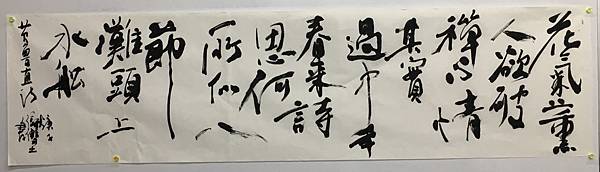 花氣薰
人欲破
禪心情
其實
過中年
春來詩
思何
所似八
節
灘頭上
水船
黃魯直詩